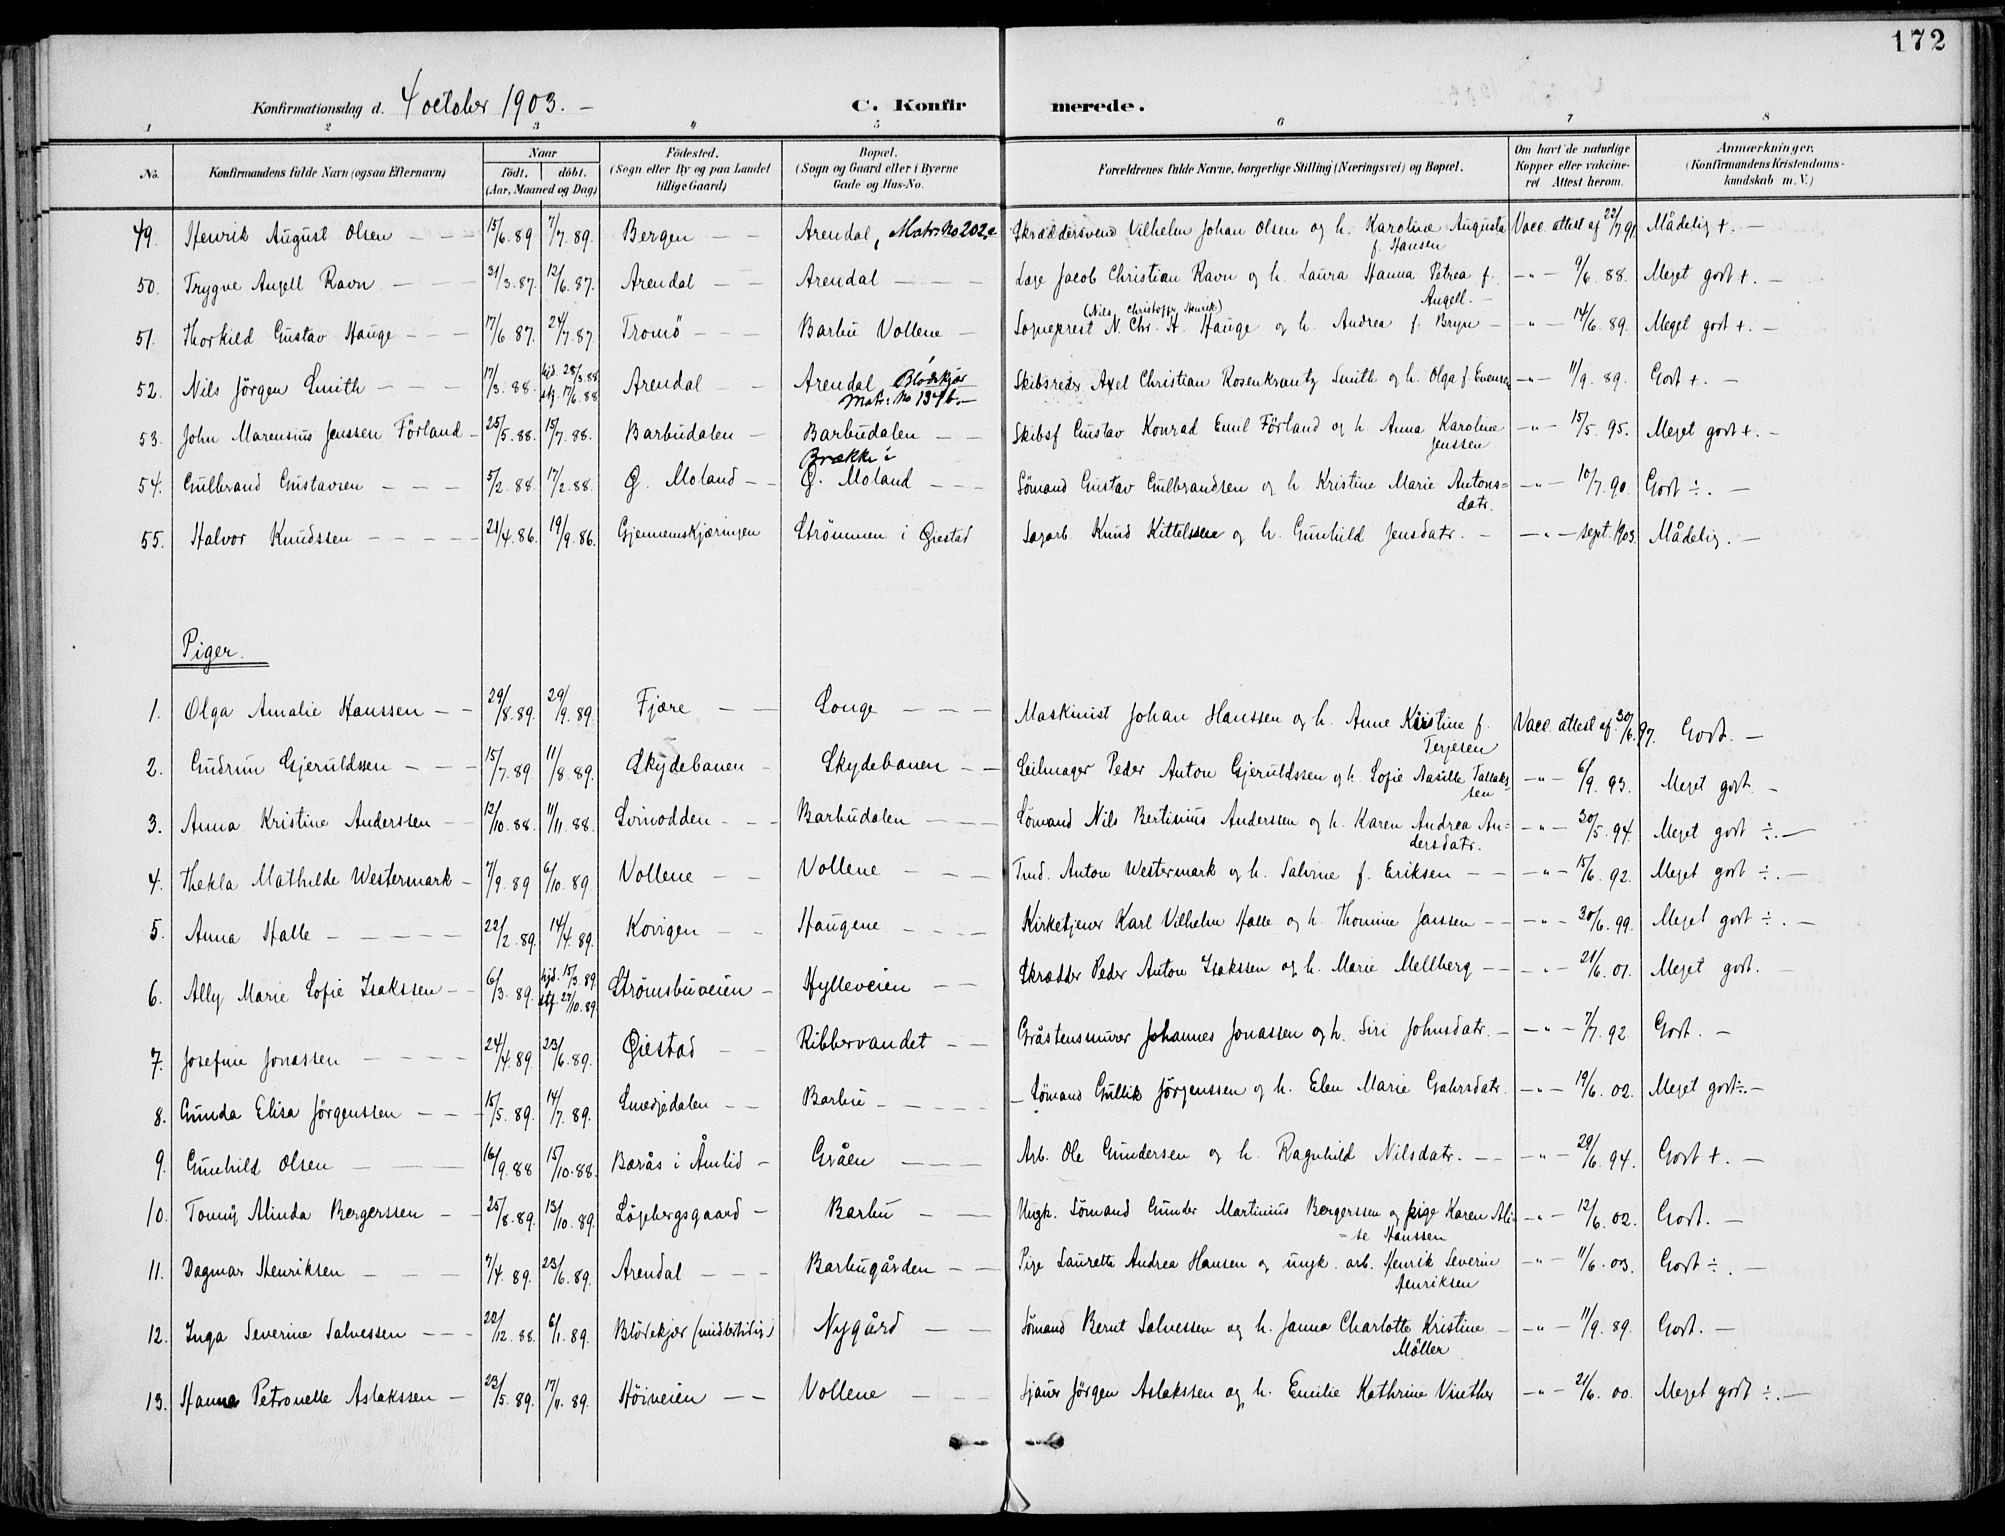 172
Konfirmationsdag d. 4 october 1903. –
C. Konfirmerede.
1 2 3 4 5 6 7 8
No. Konfirmandens fulde Navn (ogsaa Efternavn) Naar født. døbt. (Aar, Maaned og Dag) Födested. (Sogn eller By og paa Landet tillige Gaard) Bopæl. (Sogn og Gaard eller i Byerne Gade og Hus-No. Forældrenes fulde Navne, borgerlige Stilling (Næringsvei) og Bopæl. Om havt de naturlige Kopper eller vakcineret Attest herom. Anmærkninger. (Konfirmandens Kristendomskundskab m. V.)
49. Henrik August Olsen – – – 15/6. 89 7/7. 89. Bergen – – Arendal, Matr. No 202,e Skræddersvend Vilhelm Johan Olsen og h. Karoline Augusta f. Hansen Vacc. attest af 22/7 91. Mådelig +. –
50. Trygve Angell Ravn – – – 31/3. 87. 12/6. 87. Arendal – – Arendal – – – Læge Jacob Christian Ravn og h. Laura Hanna Petrea f. Angell. – –"– 9/6. 88. Meget godt +. –
51. Thorkild Gustav Hauge – – – 17/6 87. 24/7. 87. Tromö – – Barbu Vollene – Sogneprest N. Chr. H. (Nils Christoffer Henrik) Hauge og h. Andrea f. Bryn – –"– 14/6. 89. Meget godt +. –
52. Nils Jörgen Smith – – – 17/3. 88. hjd. 28/3. 88 stf. 17/6. 88 Arendal – – Arendal, Blødekjær Matr: No 134 b. – Skibsreder Axel Christian Rosenkrantz Smith og h. Olga f Evensen –"– 11/9. 89. Godt +. –
53. John Marensius Jenssen Förland – 25/5. 88. 15/7. 88. Barbudalen – Barbudalen – – Skibsf Gustav Konrad Emil Förland og h Anna Karoline Jenssen –"– 15/5. 95. Meget godt +. –
54. Gulbrand Gustavsen – – – 5/2. 88. 17/2. 88. Ø. Moland – – Brække i Ø. Moland – – – Sömand Gustav Gulbrandsen og h. Kristine Marie Antons=datr. –"– 10/7. 90. Godt ÷. –
55. Halvor Knudssen – – – – – 21/4. 86. 19/9. 86. Gjennemskjæringen Strömmen i Øiestad Sagarb. Knud Kittelssen og h. Gunhild Jensdatr. – –"– sept. 1903. Mådelig. –
Piger.
1. Olga Amalie Hanssen – – 29/8. 89. 29/9. 89. Fjære – – Songe – – – Maskinist Johan Hanssen og h. Anne Kristine f. Terjesen Vacc. attest af 30/6. 97. Godt. –
2. Gudrun Gjeruldssen – – – 15/7. 89. 11/8. 89. Skydebanen – Skydebanen – – Seilmager Peder Anton Gjeruldssen og h. Sofie Tallakssen –"– 6/9. 93. Meget godt. –
3. Anna Kristine Anderssen – – 12/10. 88. 11/11. 88. Svinodden – – – Barbudalen – – – Sömand Nils Bertinius Anderssen og h. Karen Andrea An=dersdatr. –"– 30/5. 94. Meget godt ÷. –
4. Thekla Mathilde Westermark – 7/9. 89 6/10. 89. Vollene – – Vollene – – – Tmd. Anton Westermark og h. Salvine f. Eriksen – – –"– 15/6. 92. Meget godt ÷. –
5. Anna Halle – – – – – 22/2. 89. 14/4. 89. Kovigen – – Haugene – – – – Kirketjener Karl Vilhelm Halle og h. Thomine Janssen – – –"– 30/6. 99. Meget godt ÷. –
6. Ally Marie Sofie Isakssen – – 6/3. 89. hjd. 15/3. 89. stf. 27/10. 89. Strömsbuveien – Hylleveien – – Skrædder Peder Anton Isakssen og h. Marie Mellberg – – –"– 21/6. 01. Meget godt. –
7. Josefine Jonassen – – – – 24/4. 89. 23/6. 89. Øiestad – – Ribbervandet – – Gråstensmurer Johannes Jonassen og h. Siri Johnsdatr. – –"– 7/7. 92 Godt. –
8. Gunda Elisa Jörgenssen – – – 15/5. 89. 14/7. 89. Smedjedalen – – Barbu – – – – – Sömand Gullik Jörgenssen og h. Elen Marie Gahrsdatr. –"– 19/6. 02. Meget godt ÷. –
9. Gunhild Olsen – – – 16/9. 88 15/10. 88. Borås i Åmlid – Gråen – – – Arb. Ole Gundersen og h. Ragnhild Nilsdatr. – – –"– 29/6. 94. Godt +. –
10. Tonny Alinda Bergerssen – – 25/8. 89. 13/10. 89. Löjebergsgaard – Barbu – – Ungk. Sömand Gunder Martinius Bergerssen og pige Karen Ali=se Hanssen –"– 12/6. 02. Godt. –
11. Dagmar Henriksen – – – 7/4. 89. 23/6. 89. Arendal – – – Barbugården – – Pige Laurette Andrea Hansen og ungk. arb. Henrik Severin Henriksen –"– 11/6. 03. Godt ÷. –
12. Inga Severine Salvessen – – – 22/12. 88. 6/1. 89. Blödekjær (midlertidig) Nygård – – Sömand Bernt Salvessen og h. Janna Charlotte Kristine – Möller –"– 11/9. 89. Godt. –
13. Hanna Petronelle Aslakssen – 23/5. 89. 17/11. 89. Höiveien – – Vollene – – Sjauer Jörgen Aslakssen og h. Emilie Kathrine Vinther –"– 21/6. 00. Meget godt ÷. –